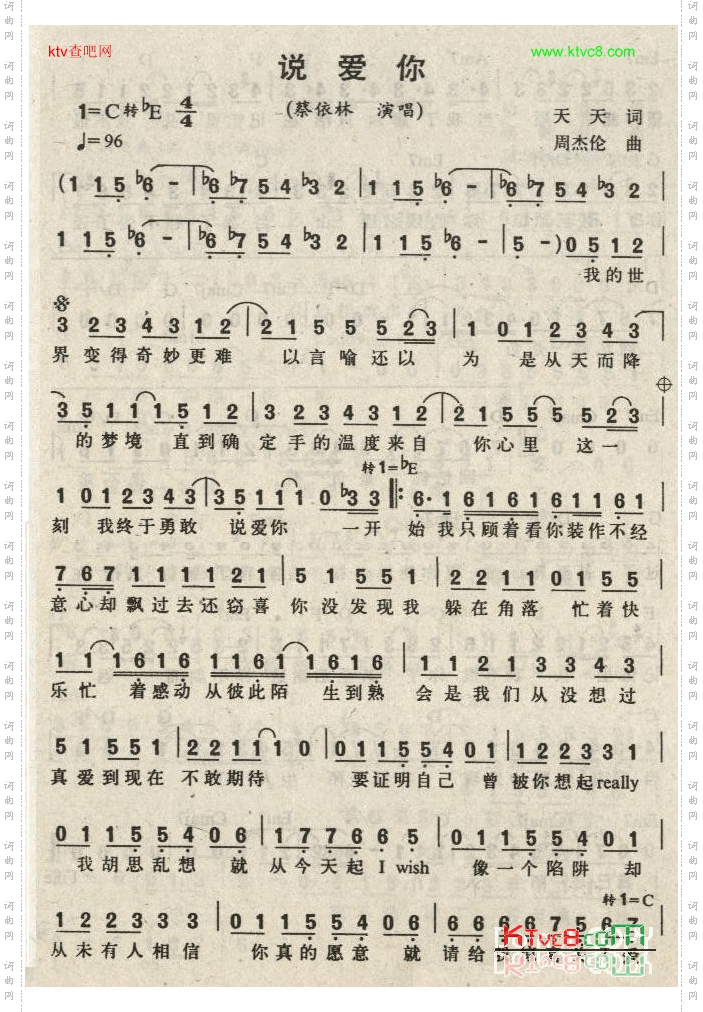 ktv查吧网
www.ktvc8.com
说 爱 你
1=C转♭E 4/4
(蔡依林 演唱)
天 天 词
♩=96
周杰伦 曲
(1 1 1 5 ♭6 - | ♭6 ♭7 5 4 ♭3 2 | 1 1 1 5 ♭6 - | ♭6 ♭7 5 4 ♭3 2 |
1 1 1 5 ♭6 - | ♭6 ♭7 5 4 ♭3 2 | 1 1 1 5 ♭6 - | 5 - ) 0 5 1 2 |
我的世
3 2 3 4 3 1 2 | 2 1 5 5 5 5 2 3 | 1 0 1 2 3 4 3 |
界 变得奇妙更难 以言喻还以 为 是从天而降
3 5 1 1 1 5 1 2 | 3 2 3 4 3 1 2 | 2 1 5 5 5 5 2 3 |
的梦境 直到确 定手的温度来自 你心里 这一
转1=♭E
1 0 1 2 3 4 3 | 3 5 1 1 1 0 ♭3 3 ‖: 6· 1 6 1 6 1 6 1 1 6 1 |
刻 我终于勇敢 说爱你 一开 始我只顾着看你装作不经
7 6 7 1 1 1 2 1 | 5 1 5 5 1 | 2 2 1 1 0 1 5 5 |
意心却飘过去还窃喜 你没发现我 躲在角落 忙着快
1 1 1 6 1 6 1 1 6 1 1 6 1 6 | 1 1 2 1 3 3 4 3 |
乐忙 着感动 从彼此陌 生到熟 会是我们从没想过
5 1 5 5 1 | 2 2 1 1 1 0 | 0 1 1 5 5 4 0 1 | 1 2 2 3 3 1 |
真爱到现在 不敢期待 要证明自己 曾被你想起really
0 1 1 5 5 4 0 6 | 1 7 7 6 6 5 | 0 1 1 5 5 4 0 1 |
我胡思乱想 就 从今天起 I wish 像一个陷阱 却
转1=C
1 2 2 3 3 3 | 0 1 1 5 5 4 0 6 | 6 6 6 6 7 5 6 7 |
从未有人相信 你真的愿意 就 请给
KTvc8.com
词曲网